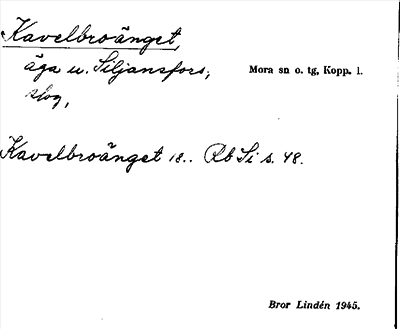 Kavelbroänget,
äga u. Siljansfors, Mora sn o. tg, Kopp. l.
skog,
Kavelbroänget 18.. Rb Si s. 48.
Bror Lindén 1945.